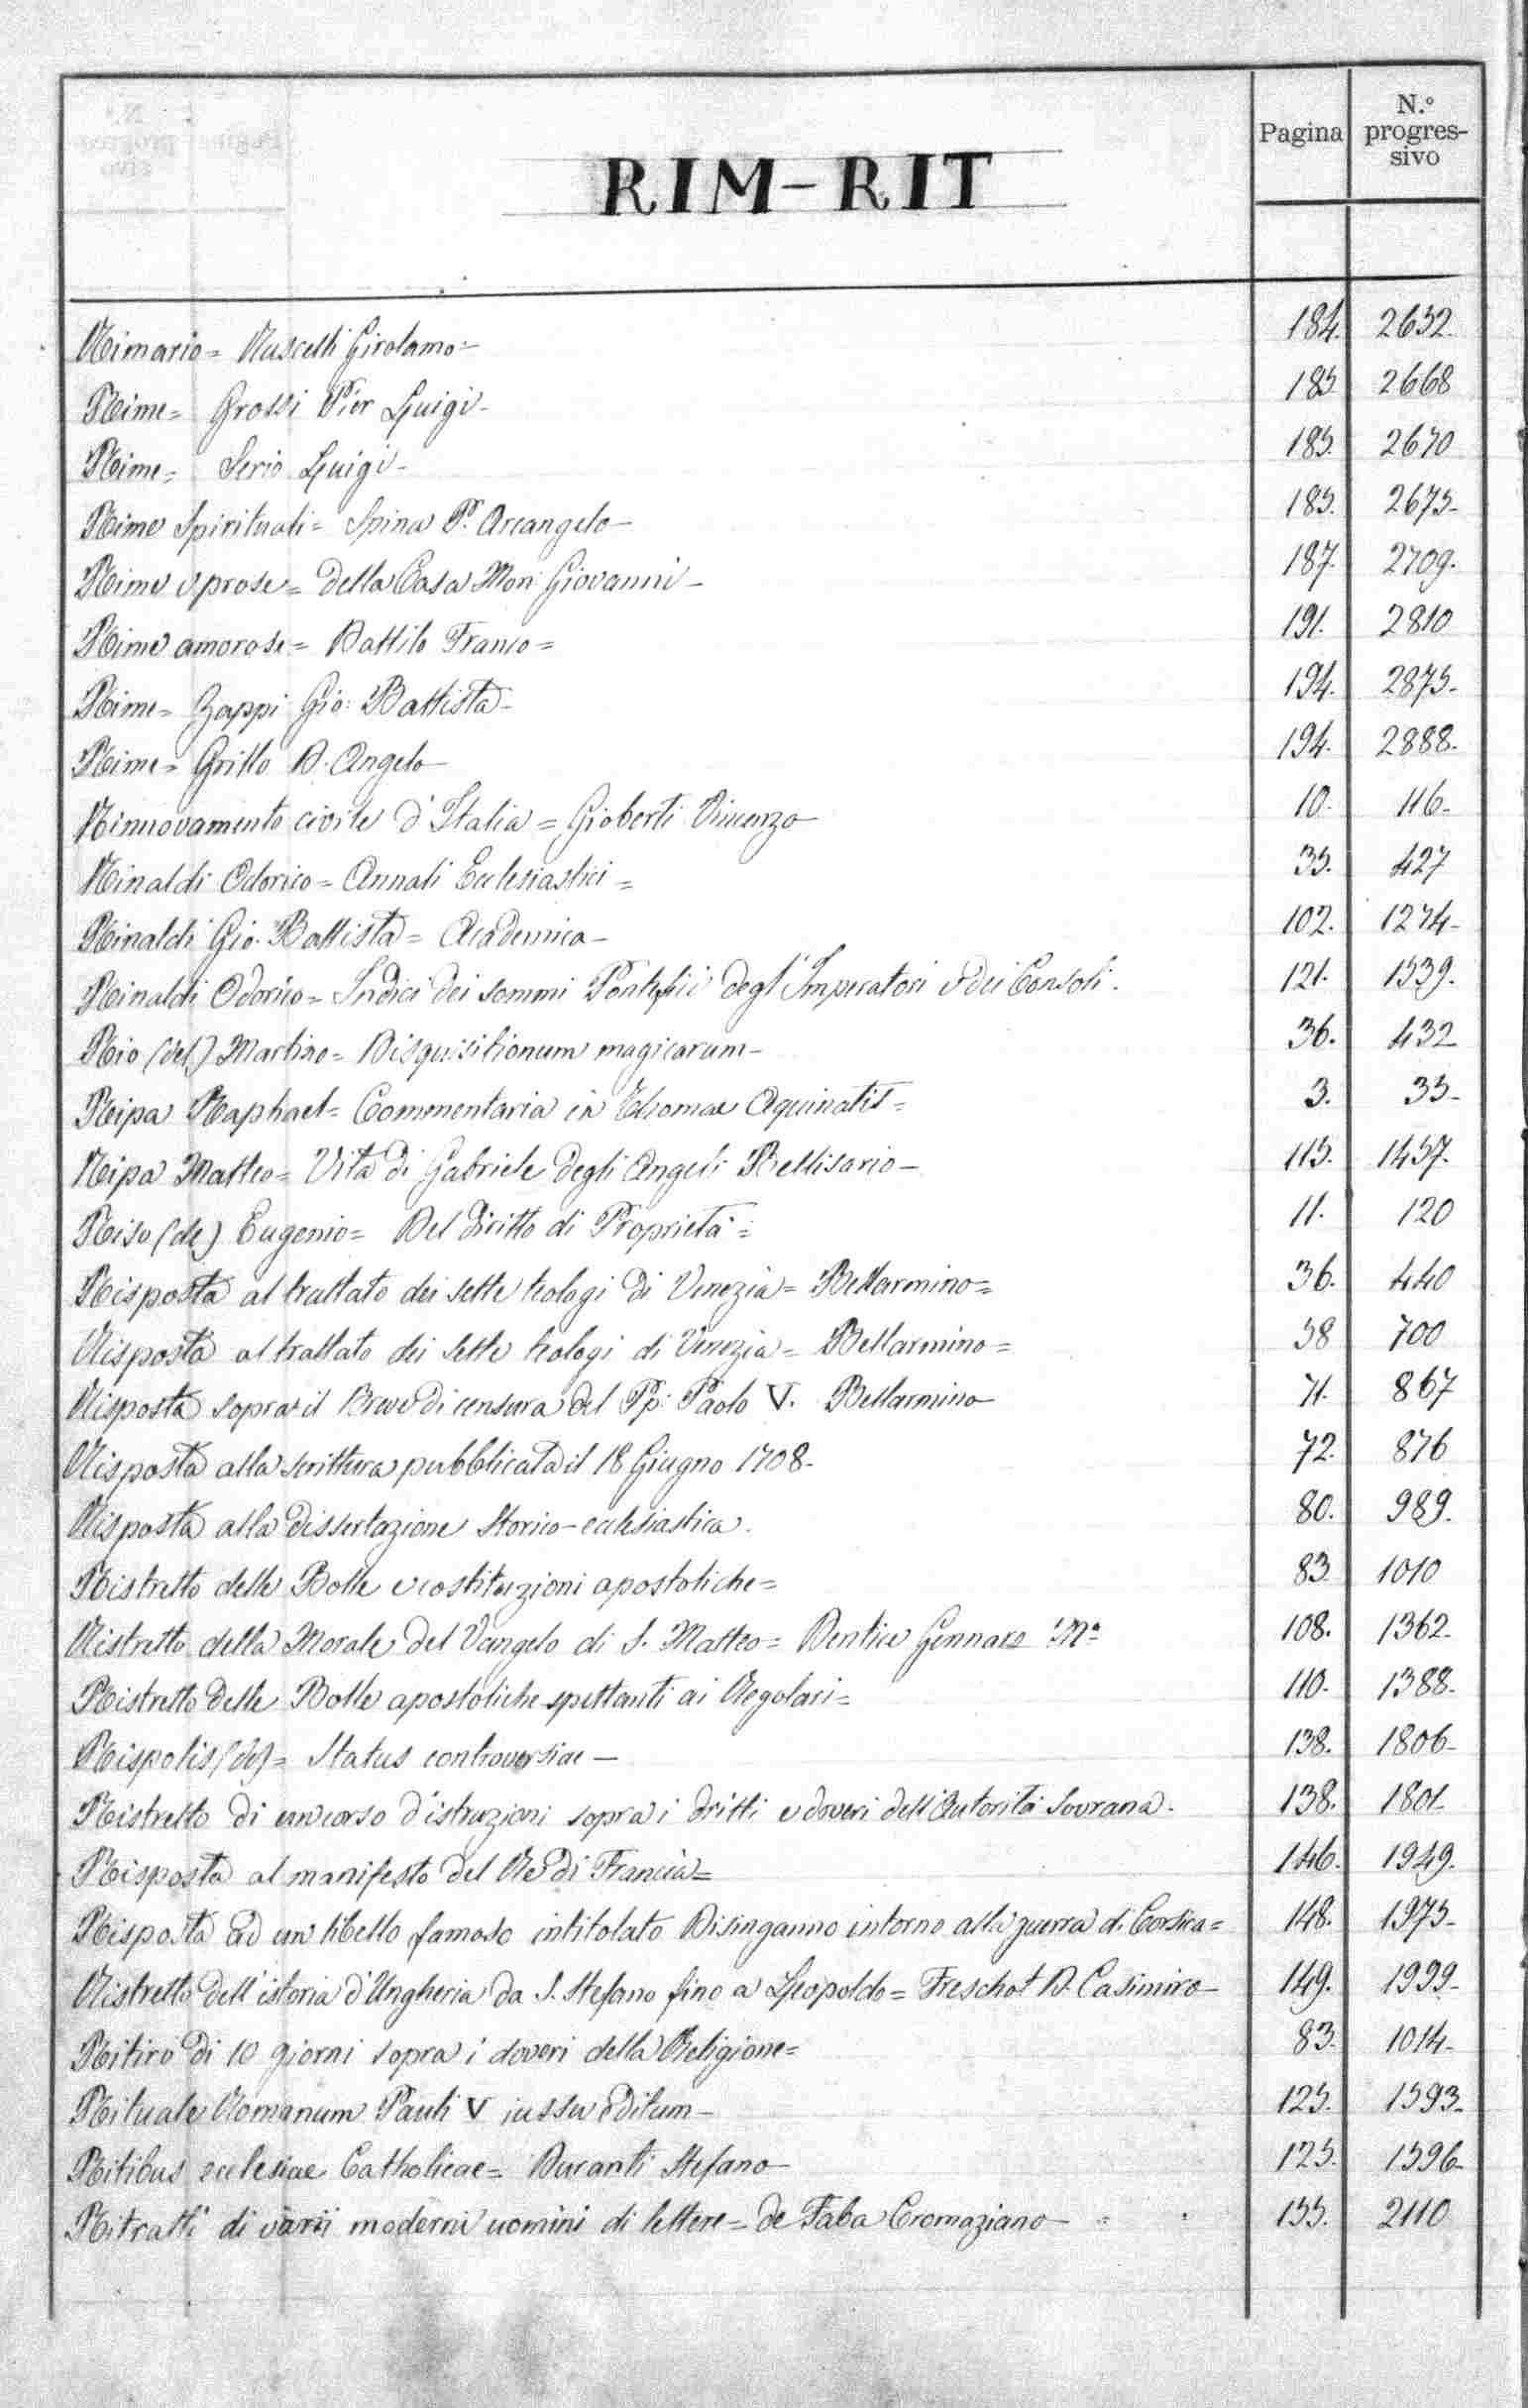 Pagina N.º progres-sivo
RIM-RIT
Rimario = Ruscelli Girolamo = 184. 2632.
Rime = Grossi Pier Luigi - 185 2668
Rime = Serio Luigi - 185. 2670
Rime Spirituali = Spina P. Arcangelo - 185. 2675-
Rime e prose = della Casa Mon: Giovanni - 187. 2709.
Rime amorose = Battilo Franco = 191. 2810
Rime = Zappi Gio: Battista - 194. 2875-
Rime = Grillo D. Angelo 194. 2888.
Rinnovamento civile d'Italia = Gioberti Vincenzo 10. 116-
Rinaldi Odorico = Annali Ecclesiastici = 35. 427
Rinaldi Gio. Battista = Academica - 102. 1274-
Rinaldi Odorico = Indici dei sommi Pontefici degl'Imperatori e dei Consoli. 121. 1539.
Rio (del) Martino = Disquisitionum magicarum - 36. 432
Ripa Raphael = Commentaria in Thomae Aquinatis = 3. 35-
Ripa Matteo = Vita di Gabriele degli Angeli Bellisario - 115. 1457.
Riso (de) Eugenio = Del diritto di Proprietà = 11. 120
Risposta al trattato dei sette teologi di Venezia = Bellarmino = 36. 440
Risposta al trattato dei sette teologi di Venezia = Bellarmino = 58 700
Risposta sopra il Breve di censura del Pp: Paolo V. Bellarmino 71. 867
Risposta alla scrittura pubblicata il 18 Giugno 1708. 72. 876
Risposta alla dissertazione storico-ecclesiastica. 80. 989.
Ristretto delle Bolle e costituzioni apostoliche = 83 1010
Ristretto della Morale del Vangelo di S. Matteo = Dentice Gennaro Mª 108. 1362.
Ristretto delle Bolle apostoliche spettanti ai Regolari = 110. 1388.
Rispolis (de) = Status controversiae - 138. 1806-
Ristretto di un corso d'istruzioni sopra i dritti e doveri dell'Autorità Sovrana. 138. 1801.
Risposta al manifesto del Re di Francia = 146. 1949.
Risposta ad un libello famoso intitolato Disinganno intorno alla guerra di Corsica = 148. 1975-
Ristretto dell'istoria d'Ungheria da S. Stefano fino a Leopoldo = Freschot D. Casimiro - 149. 1999-
Ritiro di 10 giorni sopra i doveri della Religione = 83. 1014-
Rituale Romanum Pauli V iussu editum - 125. 1593-
Ritibus ecclesiae Catholicae = Duranti Stefano - 125. 1596-
Ritratti di varii moderni uomini di lettere = de Faba Cromaziano - 155. 2110